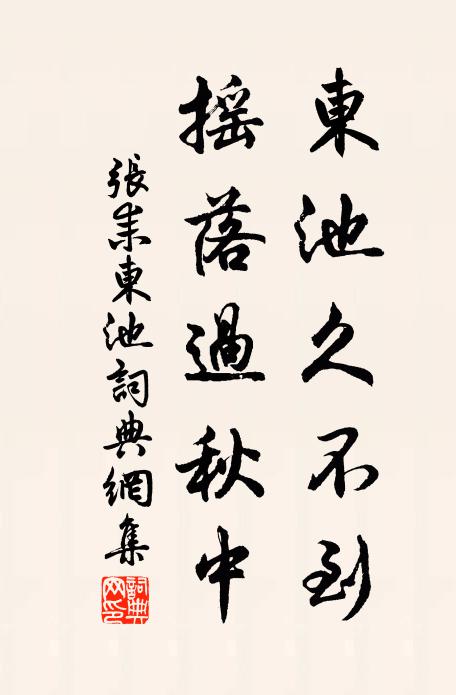 東池久不到
搖落過秋中
張耒東池詞典網集
詞典网印